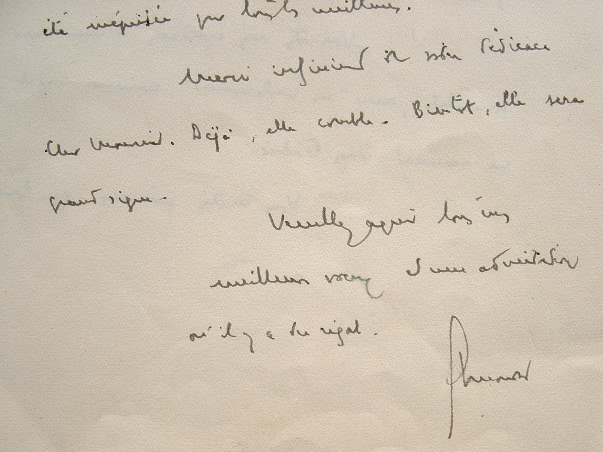 été méprisée par tous les meilleurs.
Merci infiniment de votre dédicace
cher Monsieur. Déjà, elle comble. Bientôt, elle sera
grand signe.
Veuillez agréer tous mes
meilleurs vœux et une admiration
où il y a du